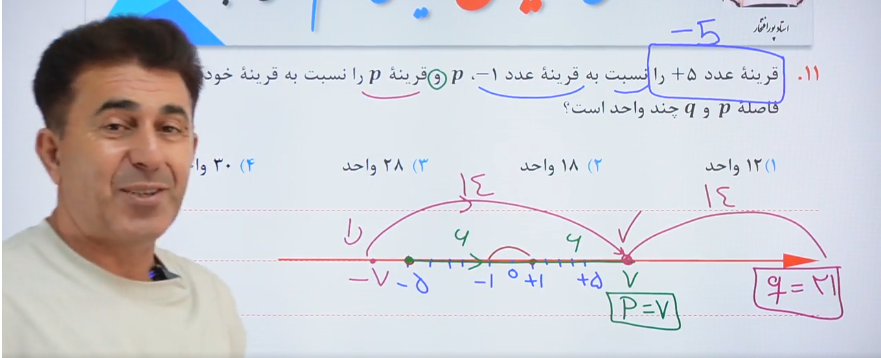 استاد پورافتخار
-۵
۱۱. قرینهٔ عدد +۵ را نسبت به قرینهٔ عدد -۱، p و قرینهٔ p را نسبت به قرینهٔ خود
فاصلهٔ p و q چند واحد است؟
۱) ۱۲ واحد ۲) ۱۸ واحد ۳) ۲۸ واحد ۴) ۳۰
۱۴ ۱۴
۶ ۶ ۷
-۷ -۵ -۱ ۰ +۱ +۵ ۷
P=۷ q=۲۱